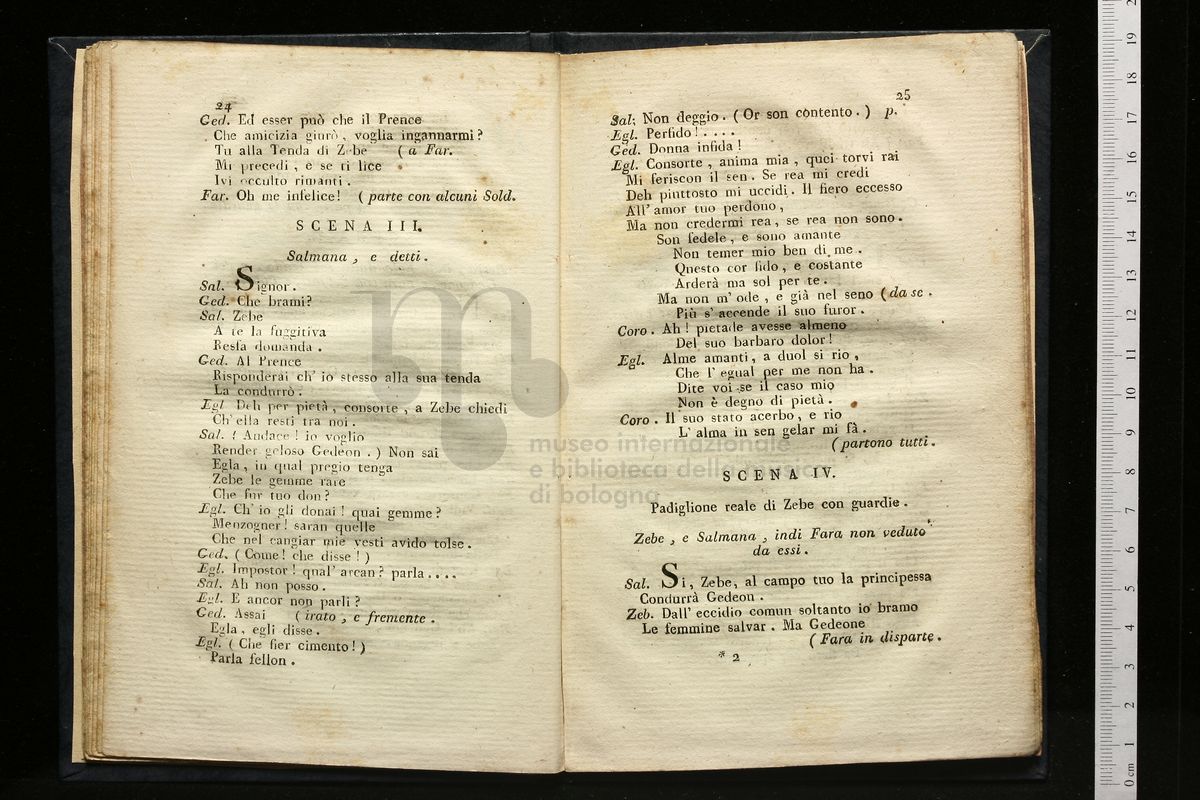 24
Ged. Ed esser può che il Prence
Che amicizia giurò, voglia ingannarmi?
Tu alla Tenda di Zebe (a Far.
Mi precedi, e se ti lice
Ivi occulto rimanti.
Far. Oh me infelice! (parte con alcuni Sold.
SCENA III.
Salmana, e detti.
Sal. Signor.
Ged. Che brami?
Sal. Zebe
A te la fuggitiva
Resfa domanda.
Ged. Al Prence
Risponderai ch' io stesso alla sua tenda
La condurrò.
Egl. Deh per pietà, consorte, a Zebe chiedi
Ch' ella resti tra noi.
Sal. (Audace! io voglio
Render geloso Gedeon.) Non sai
Egla, in qual pregio tenga
Zebe le gemme rare
Che fur tuo don?
Egl. Ch' io gli donai! quai gemme?
Menzogner! saran quelle
Che nel cangiar mie vesti avido tolse.
Ged. (Come! che disse!)
Egl. Impostor! qual' arcan? parla....
Sal. Ah non posso.
Egl. E ancor non parli?
Ged. Assai (irato, e fremente.
Egla, egli disse.
Egl. (Che fier cimento!)
Parla fellon.
25
Sal. Non deggio. (Or son contento.) p.
Egl. Perfido!....
Ged. Donna infida!
Egl. Consorte, anima mia, quei torvi rai
Mi feriscon il sen. Se rea mi credi
Deh piuttosto mi uccidi. Il fiero eccesso
All' amor tuo perdono,
Ma non credermi rea, se rea non sono.
Son fedele, e sono amante
Non temer mio ben di me.
Questo cor fido, e costante
Arderà ma sol per te.
Ma non m' ode, e già nel seno (da se.
Più s' accende il suo furor.
Coro. Ah! pietade avesse almeno
Del suo barbaro dolor!
Egl. Alme amanti, a duol si rio,
Che l' egual per me non ha.
Dite voi se il caso mio
Non è degno di pietà.
Coro. Il suo stato acerbo, e rio
L' alma in sen gelar mi fà.
(partono tutti.
SCENA IV.
Padiglione reale di Zebe con guardie.
Zebe, e Salmana, indi Fara non veduto
da essi.
Sal. Si, Zebe, al campo tuo la principessa
Condurrà Gedeon.
Zeb. Dall' eccidio comun soltanto io bramo
Le femmine salvar. Ma Gedeone
(Fara in disparte.
* 2
museo internazionale
e biblioteca della musica
di bologna
0 cm 1 2 3 4 5 6 7 8 9 10 11 12 13 14 15 16 17 18 19